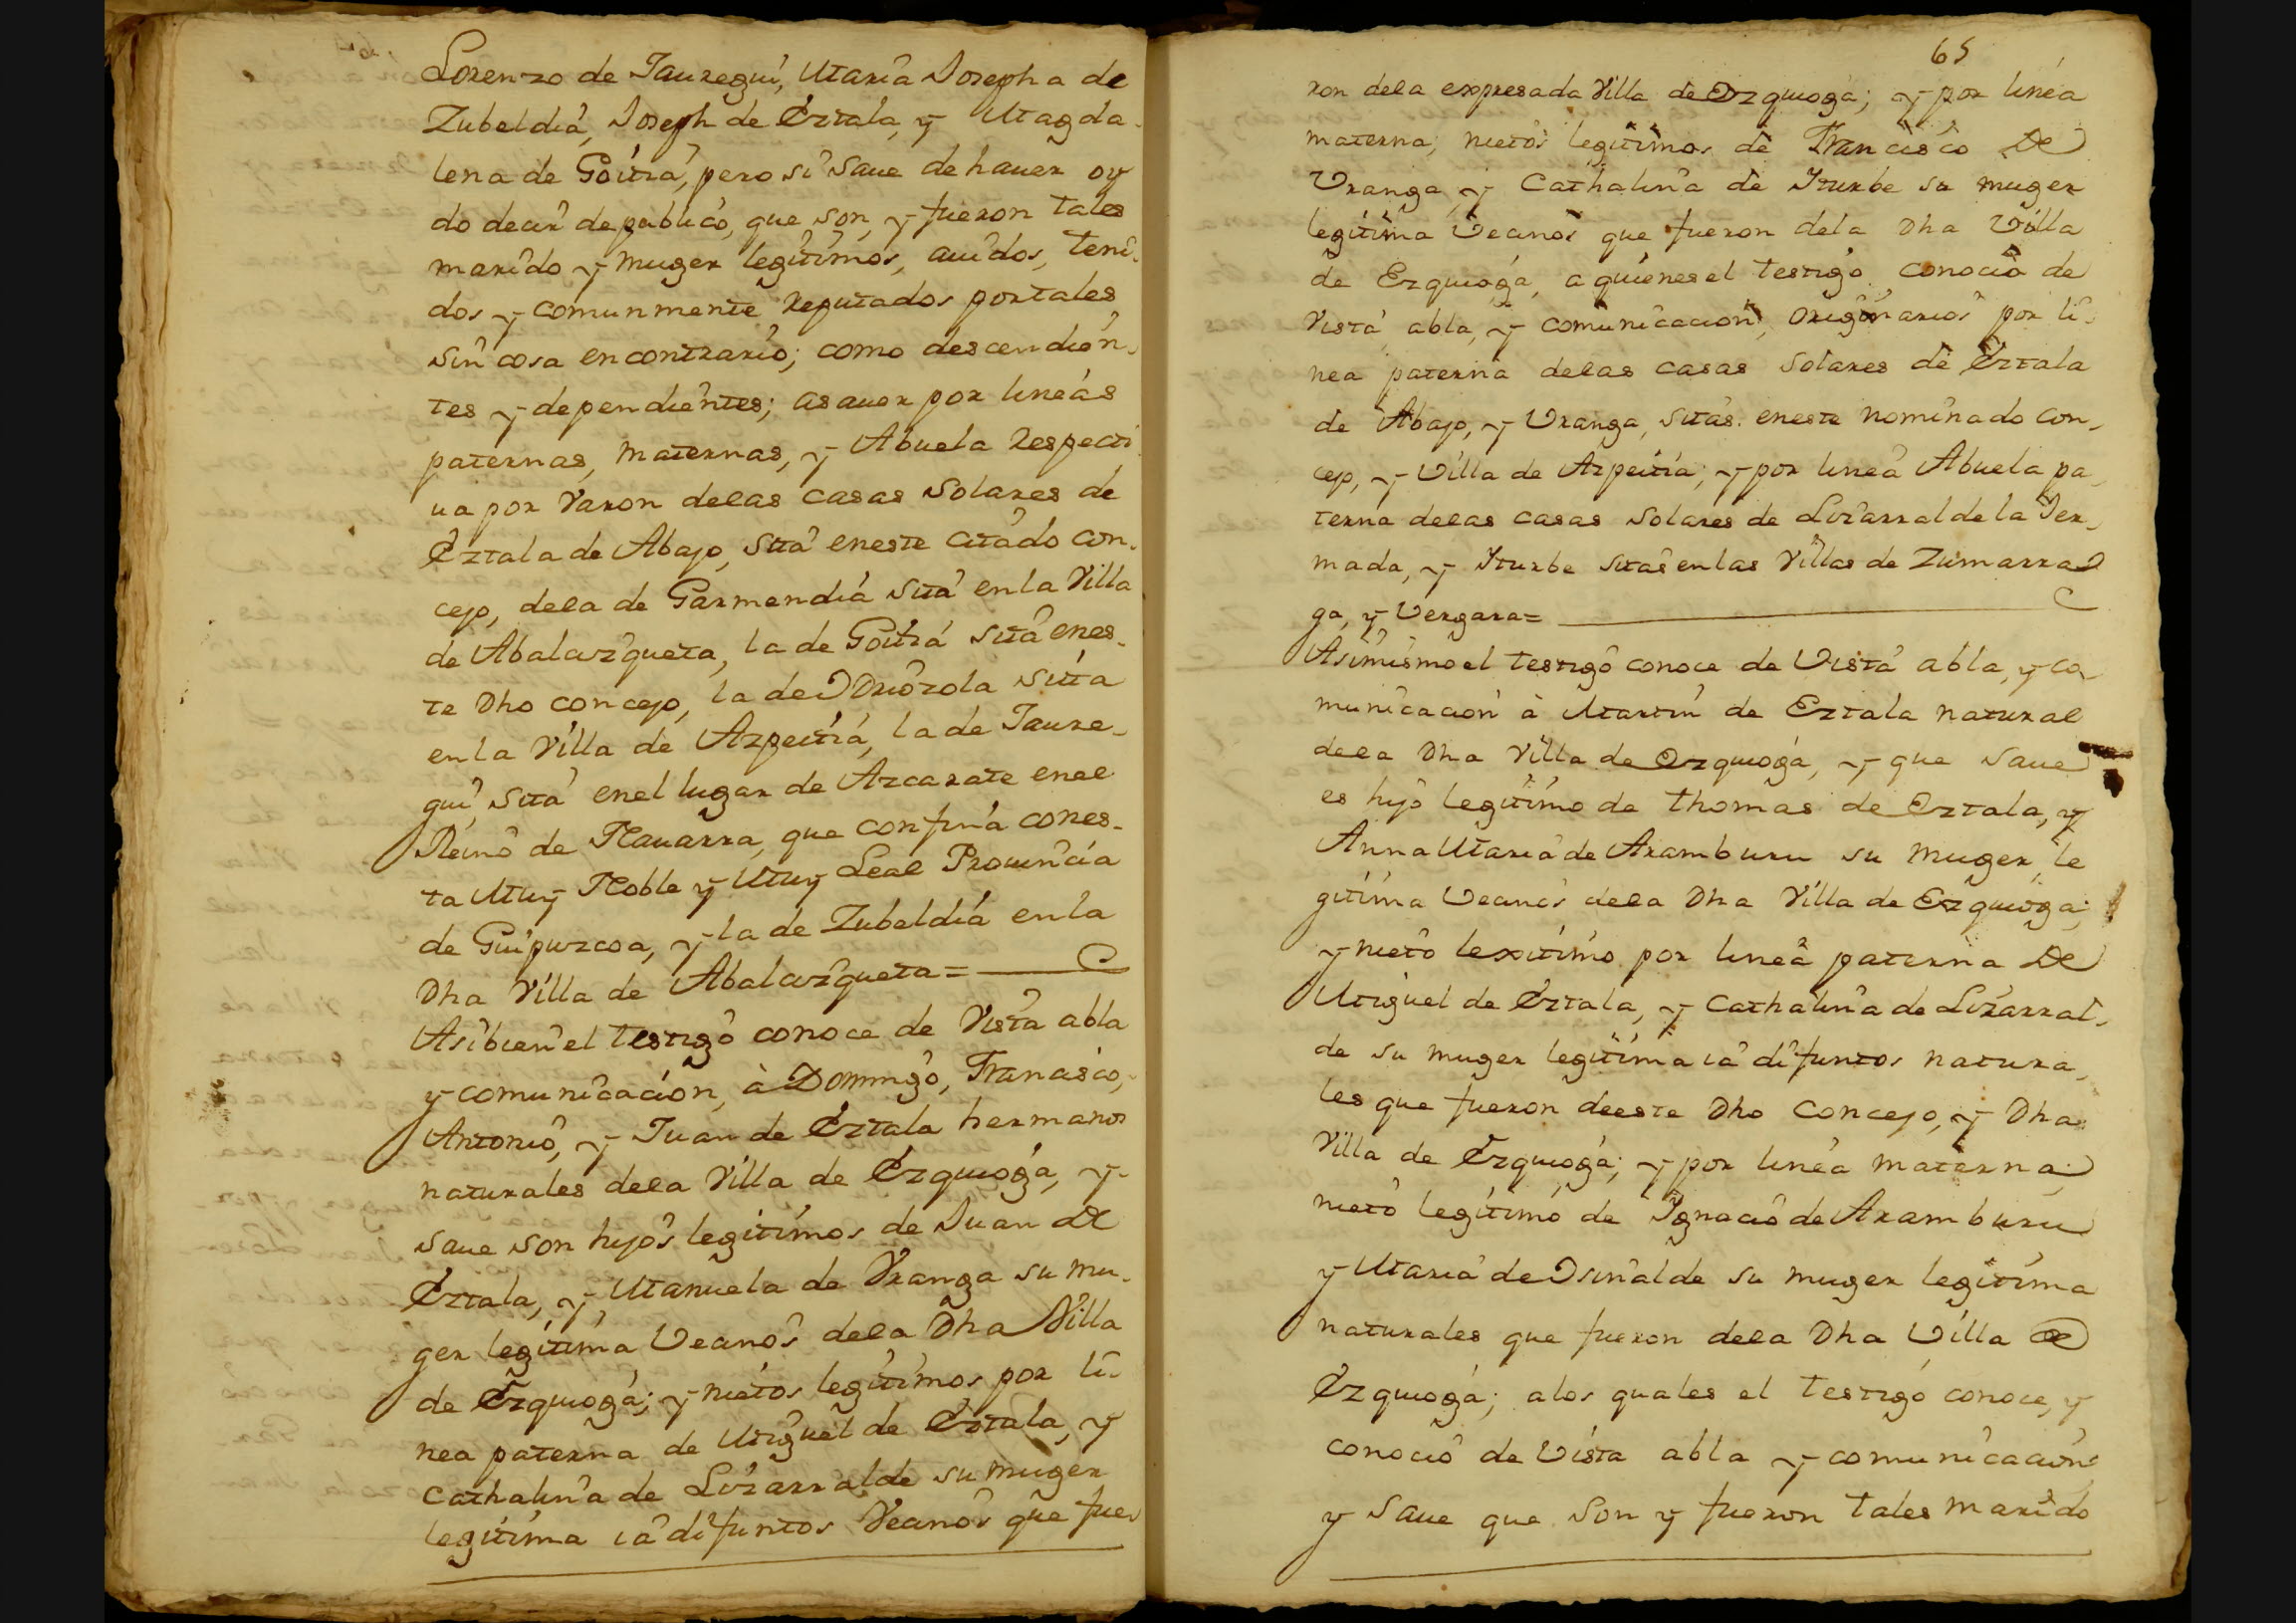 Lorenzo de Jauregui, Maria Josepha de
Zubeldia, Joseph de Eztala, y Magda-
lena de Goitia, pero si saue de hauer oy
do decir de publico, que son, y fueron tales
marido y muger legitimos, auidos, teni-
dos y comunmente reputados portales
sin cosa en contrario; como descendien-
tes y dependientes; asauer por lineas
paternas, maternas, y Abuela respecti
ua por varon delas casas solares de
Eztala de Abajo, sita eneste citado con-
cejo, dela de Garmendia sita en la Villa
de Abalcizqueta, la de Goitia sita enes-
te Dho concejo, la de Odriozola sitta
en la Villa de Azpeitia, la de Jaure-
gui, sita enel lugar de Azcarate enel
Reino de Nauarra, que confina cones-
ta Muy Noble y Muy Leal Prouincia
de Guipuzcoa, y la de Zubeldia en la
Dha Villa de Abalcizqueta=
Asibien el testigo conoce de Vista abla
y comunicacion, à Domingo, Francisco,
Antonio, y Juan de Eztala hermanos
naturales dela Villa de Ezquioga, y
saue son hijos legitimos de Juan de
Eztala, y Manuela de Vranga su mu-
ger legitima Vecinos dela Dha Villa
de Ezquioga; y nietos legitimos por li-
nea paterna de Miguel de Eztala, y
Cathalina de Lizarralde su muger
legitima ia difuntos Vecinos que fue
65
ron dela expresada Villa de Ezquioga; y por linea
materna, nietos legitimos de Francisco de
Vranga, y Cathalina de Yturbe su muger
legitima Vecinos que fueron dela Dha Villa
de Ezquioga, a quienes el testigo conocio de
Vista, abla, y comunicacion, originarios por li-
nea paterna delas casas solares de Eztala
de Abajo, y Vranga, sitas eneste nominado con-
cejo, y Villa de Azpeitia; y por linea Abuela pa-
terna delas casas solares de Lizarralde la Jer-
mada, y Yturbe sitas en las Villas de Zumarra
ga, y Vergara=
Asimismo el testigo conoce de Vista abla, y co-
municacion à Martin de Eztala natural
dela Dha Villa de Ezquioga, y que saue
es hijo legitimo de thomas de Eztala, y
Anna Maria de Aramburu su muger le
gitima Vecinos dela Dha Villa de Ezquioga;
y nieto lexitimo por linea paterna de
Miguel de Eztala, y Cathalina de Lizarral-
de su muger legitima ia difuntos natura-
les que fueron deeste Dho Concejo, y Dha
Villa de Ezquioga; y por linea materna
nieto legitimo de Ygnacio de Aramburu
y Maria de Osinalde su muger legitima
naturales que fueron dela Dha Villa de
Ezquioga; alos quales el testigo conoce, y
conocio de Vista abla y comunicacion
y saue que son y fueron tales marido